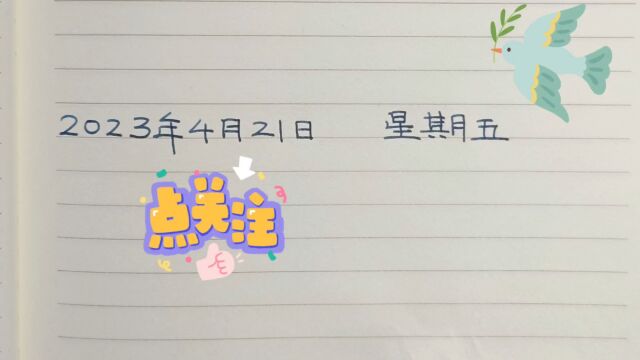 2023年4月21日 星期五
点关注